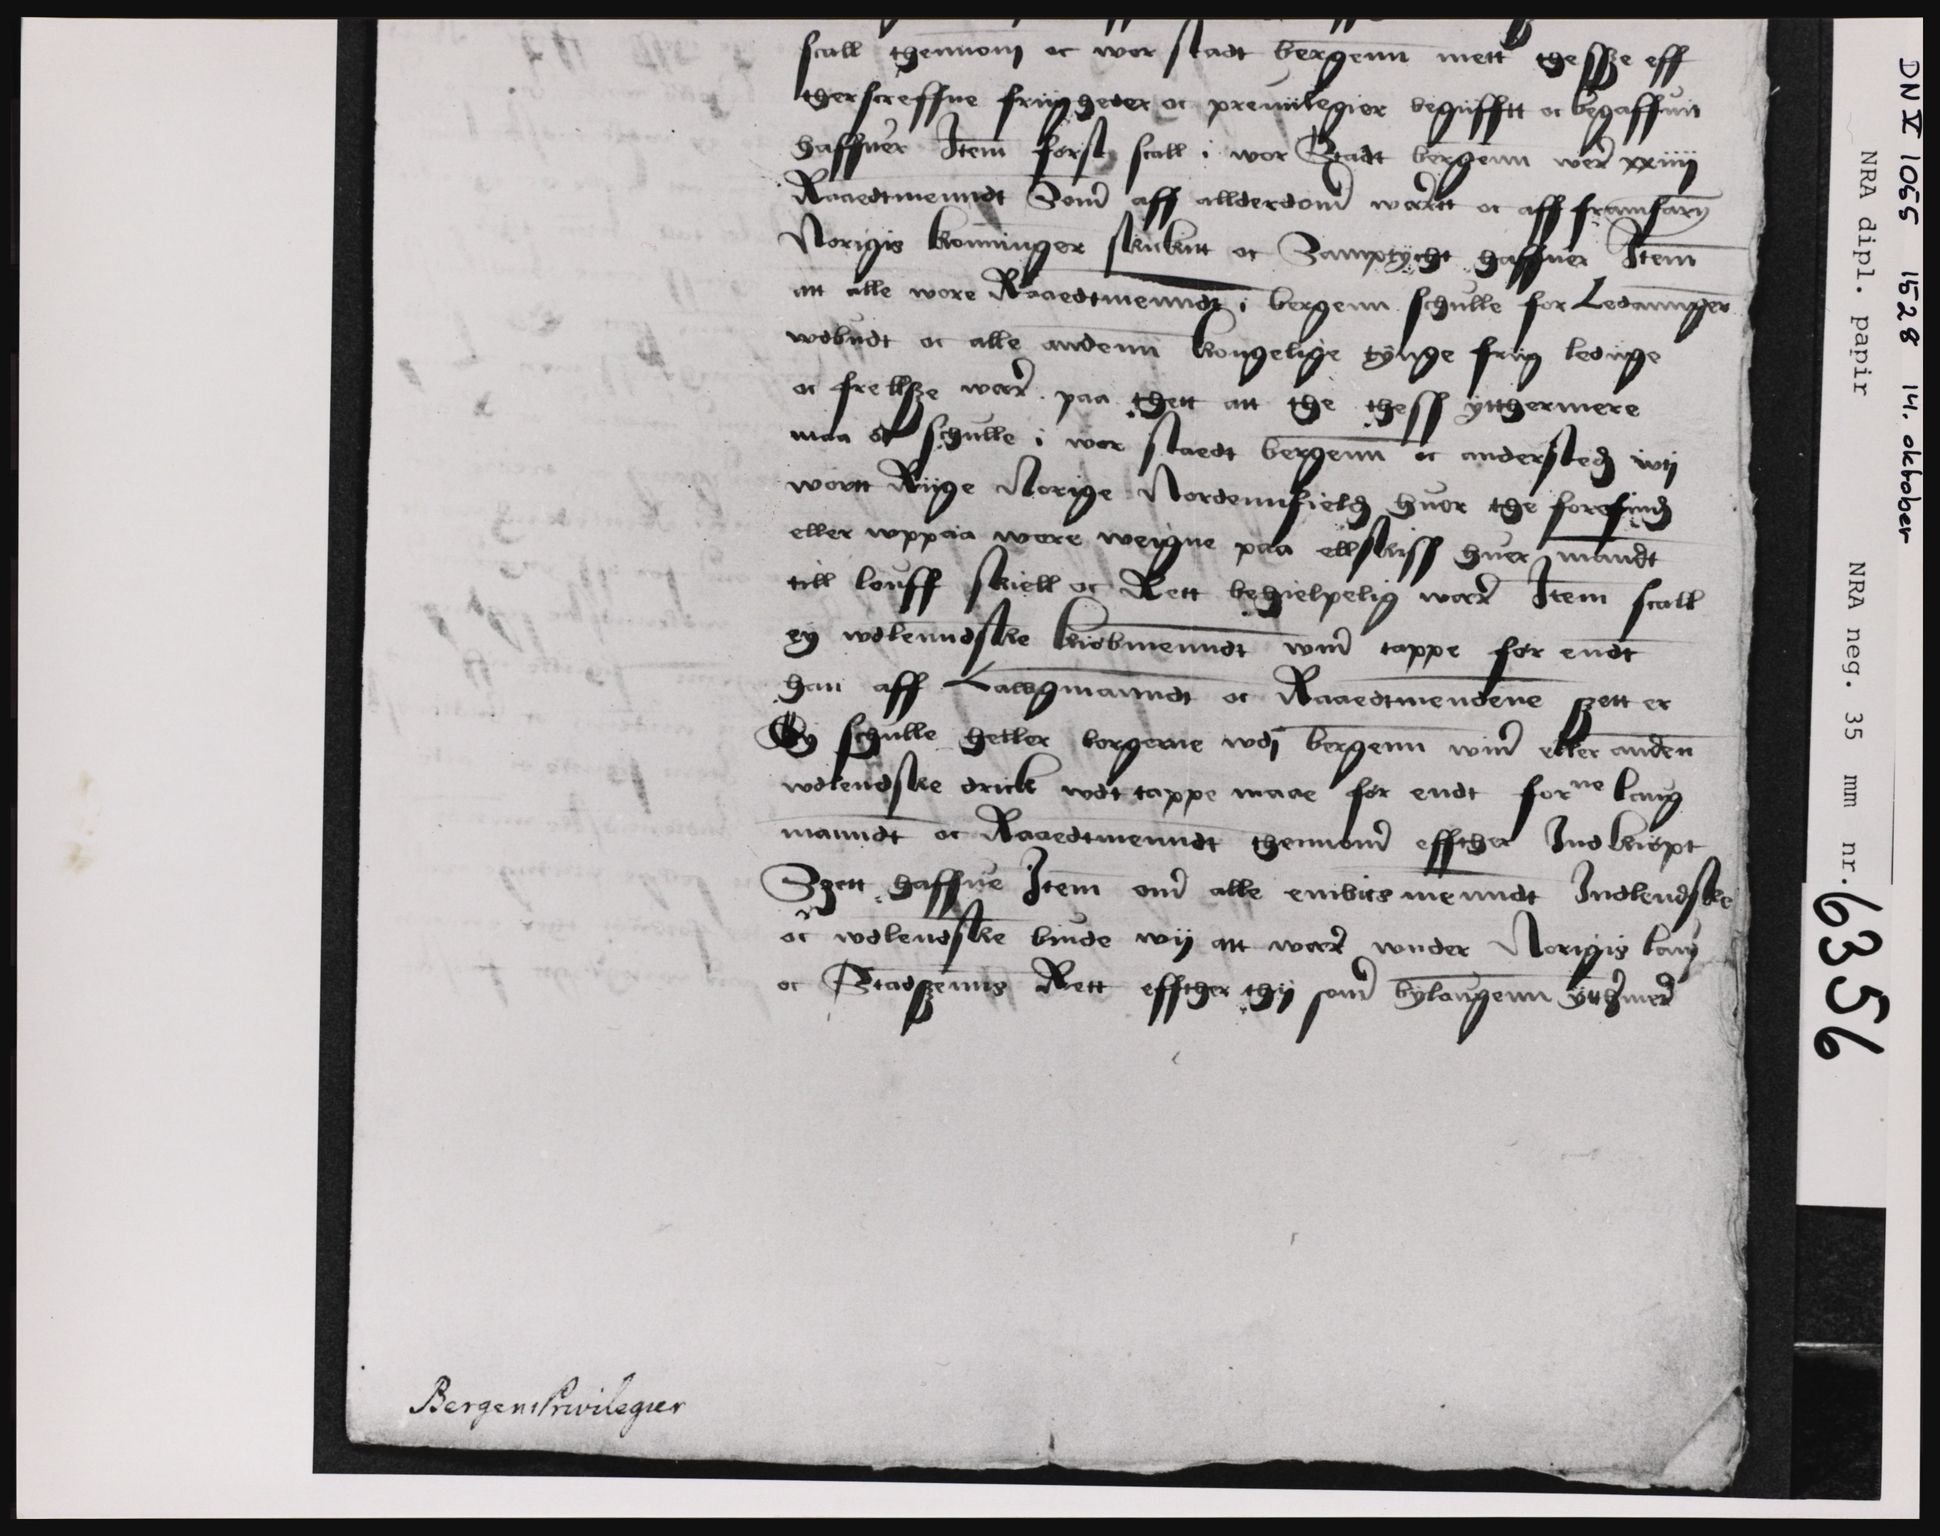 scall thennom oc wor stadt bergenn mett thessze eff
therscreffne friigheder oc preuiilegier begiifftt oc begaffuit
haffuer Item først scall i wor Stadt bergenn wer xxiiij
Raaedtmenndt Som aff allderdom werett oc aff framfarn
Norigis konninger skickitt oc Samptycht haffuer Item
att alle wore Raaedtmenndt i bergenn schulle for Ledannger
wdbudt oc alle andenn kongelige tynge friig ledige
oc frellsze were paa thett att the thess ytthermere
maa oc schulle i wor staedt bergenn oc andersteds wij
wortt Riige Norige Nordennfields huor the forefinds
eller wppaa were weigne paa ellskiss huer mandt
till louff skiell oc Rett behielpelig were Item scall
ey wdlenndske kiøbmenndt win tappe før endt
han aff Lawgmanndt oc Raaedtmendene szett er
Ey schulle heller borgerne wdj bergenn win eller anden
wdlendske drick wdt tappe maae før endt forne laug
manndt oc Raaedtmenndt thennom effther Indkiøpt
Szett haffue Item om alle embitsmenndt Indlendske
oc wdlendske biude wij att were wnder Norigis laug
oc Stadszenns Rett effther thij som bylaugenn ytthermere
Bergens Privilegier
DN V 1055 1528 14. oktober
NRA dipl. papir NRA neg. 35 mm nr. 6356